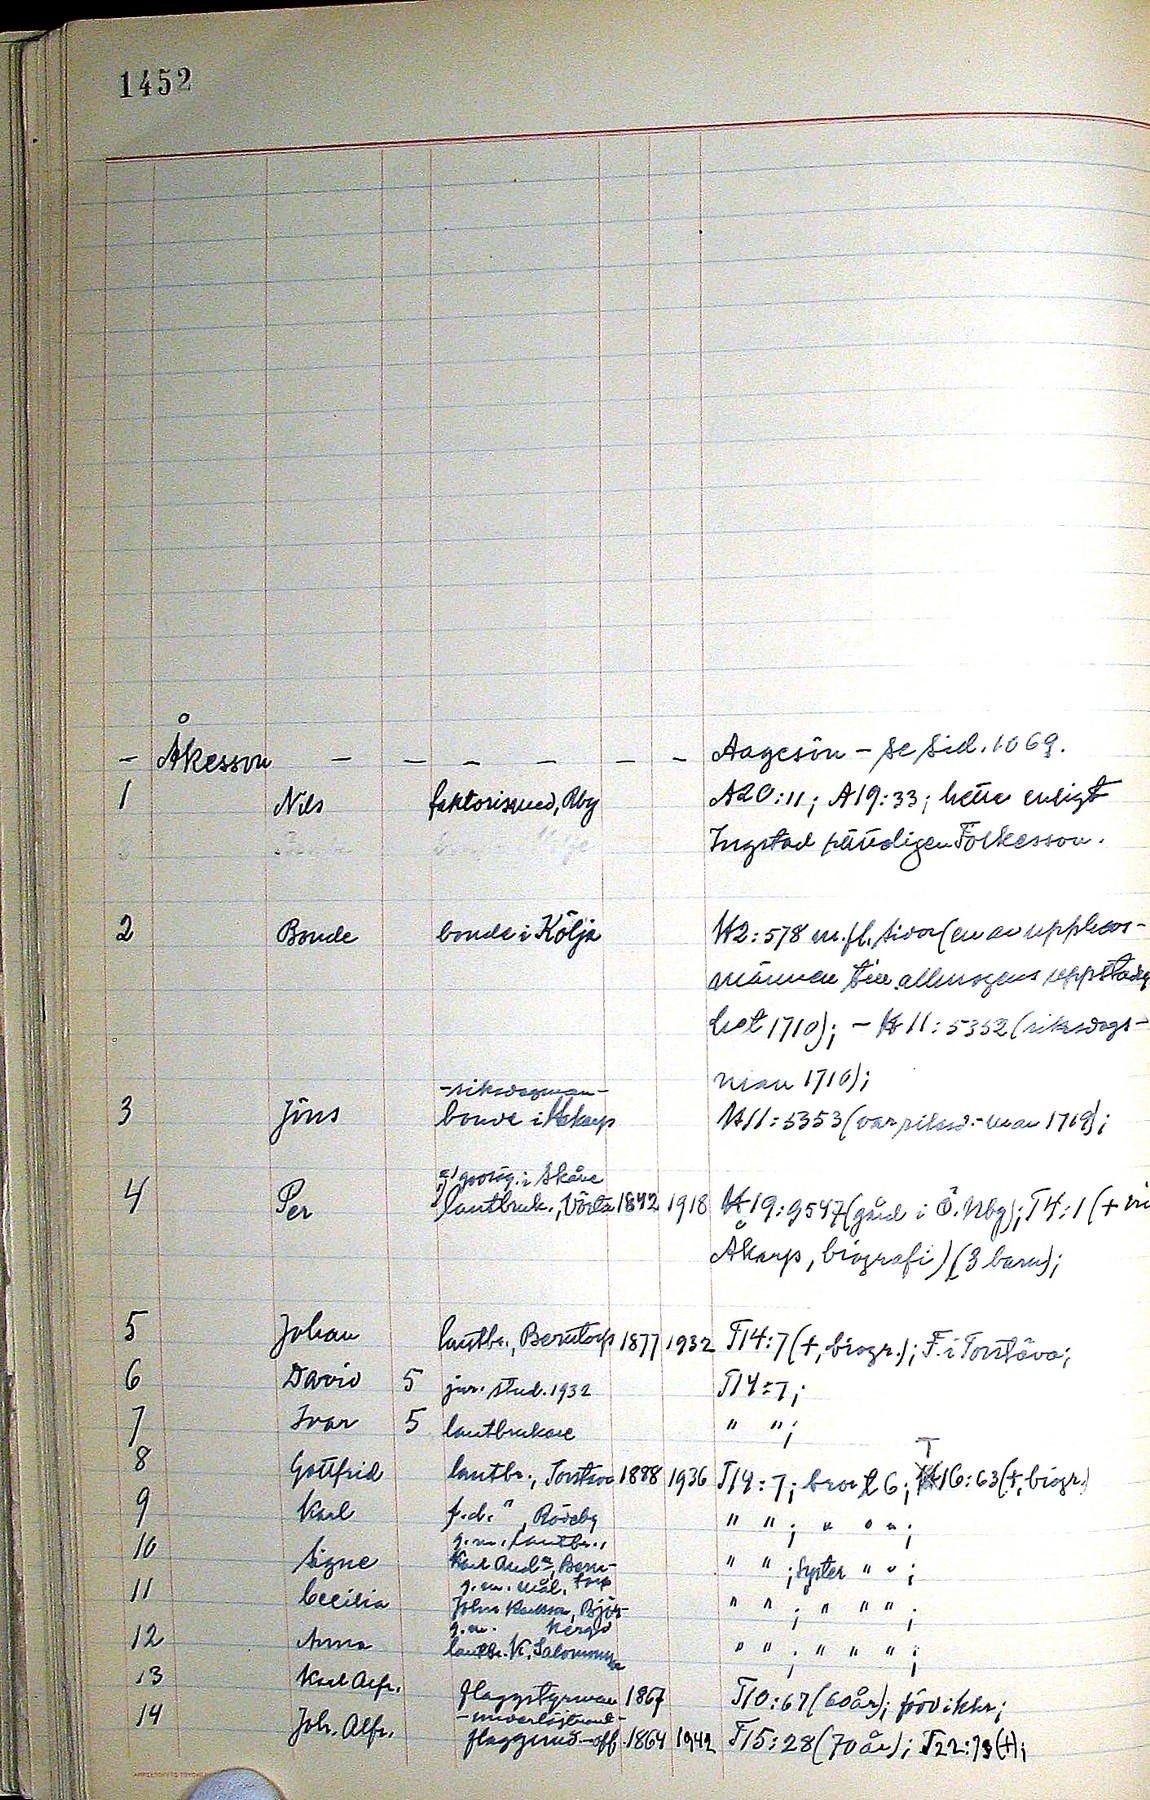 1452
– Åkesson – – – – – – Aagesön – se sid. 1069.
1 Nils faktorismed, Rby A20:11; A19:33; hette enligt
Ingstad Folkesson.
2 Bonde bonde i Kölja H2:578 m.fl. sidor (en av upphovs-
männen till allmogens
het 1710); – H11:5352 (riksdags-
man 1710);
–riksdagsman–
3 Jöns bonde i H11:5353 (var riksd.-man 1719);
i Skåne
4 Per lantbruk., 1842 1918 H19:9547 (gård i Ö. Nbg); T4:1 (+ i
Åkarp, biografi) (3 barn);
5 Johan lantbr., Berntorp 1877 1932 T14:7 (+, biogr.); F. i Torstäva;
6 David 5 jur. stud. 1932 T14:7;
7 Ivar 5 lantbrukare " ";
T
8 Gottfrid lantbr., 1888 1936 T14:7; bror t 6; 16:63 (+, biogr.)
9 Karl f.d. ", Rödeby " "; " " ";
g.m. lantbr.,
10 Signe Karl And:n, Bern- " "; syster " ";
g.m. mål. torp
11 Cecilia John Karlsson, Björ- " "; " " ";
g.m. keryd
12 Anna lantbr. K. Salomonsson " "; " " " ";
13 Karl Alfr. flaggstyrman 1867 T10:67 (60 år);
–underlöjtnant–
14 Joh. Alfr. flaggund.-off. 1864 1942 T15:28 (70 år); T22:73 (+);